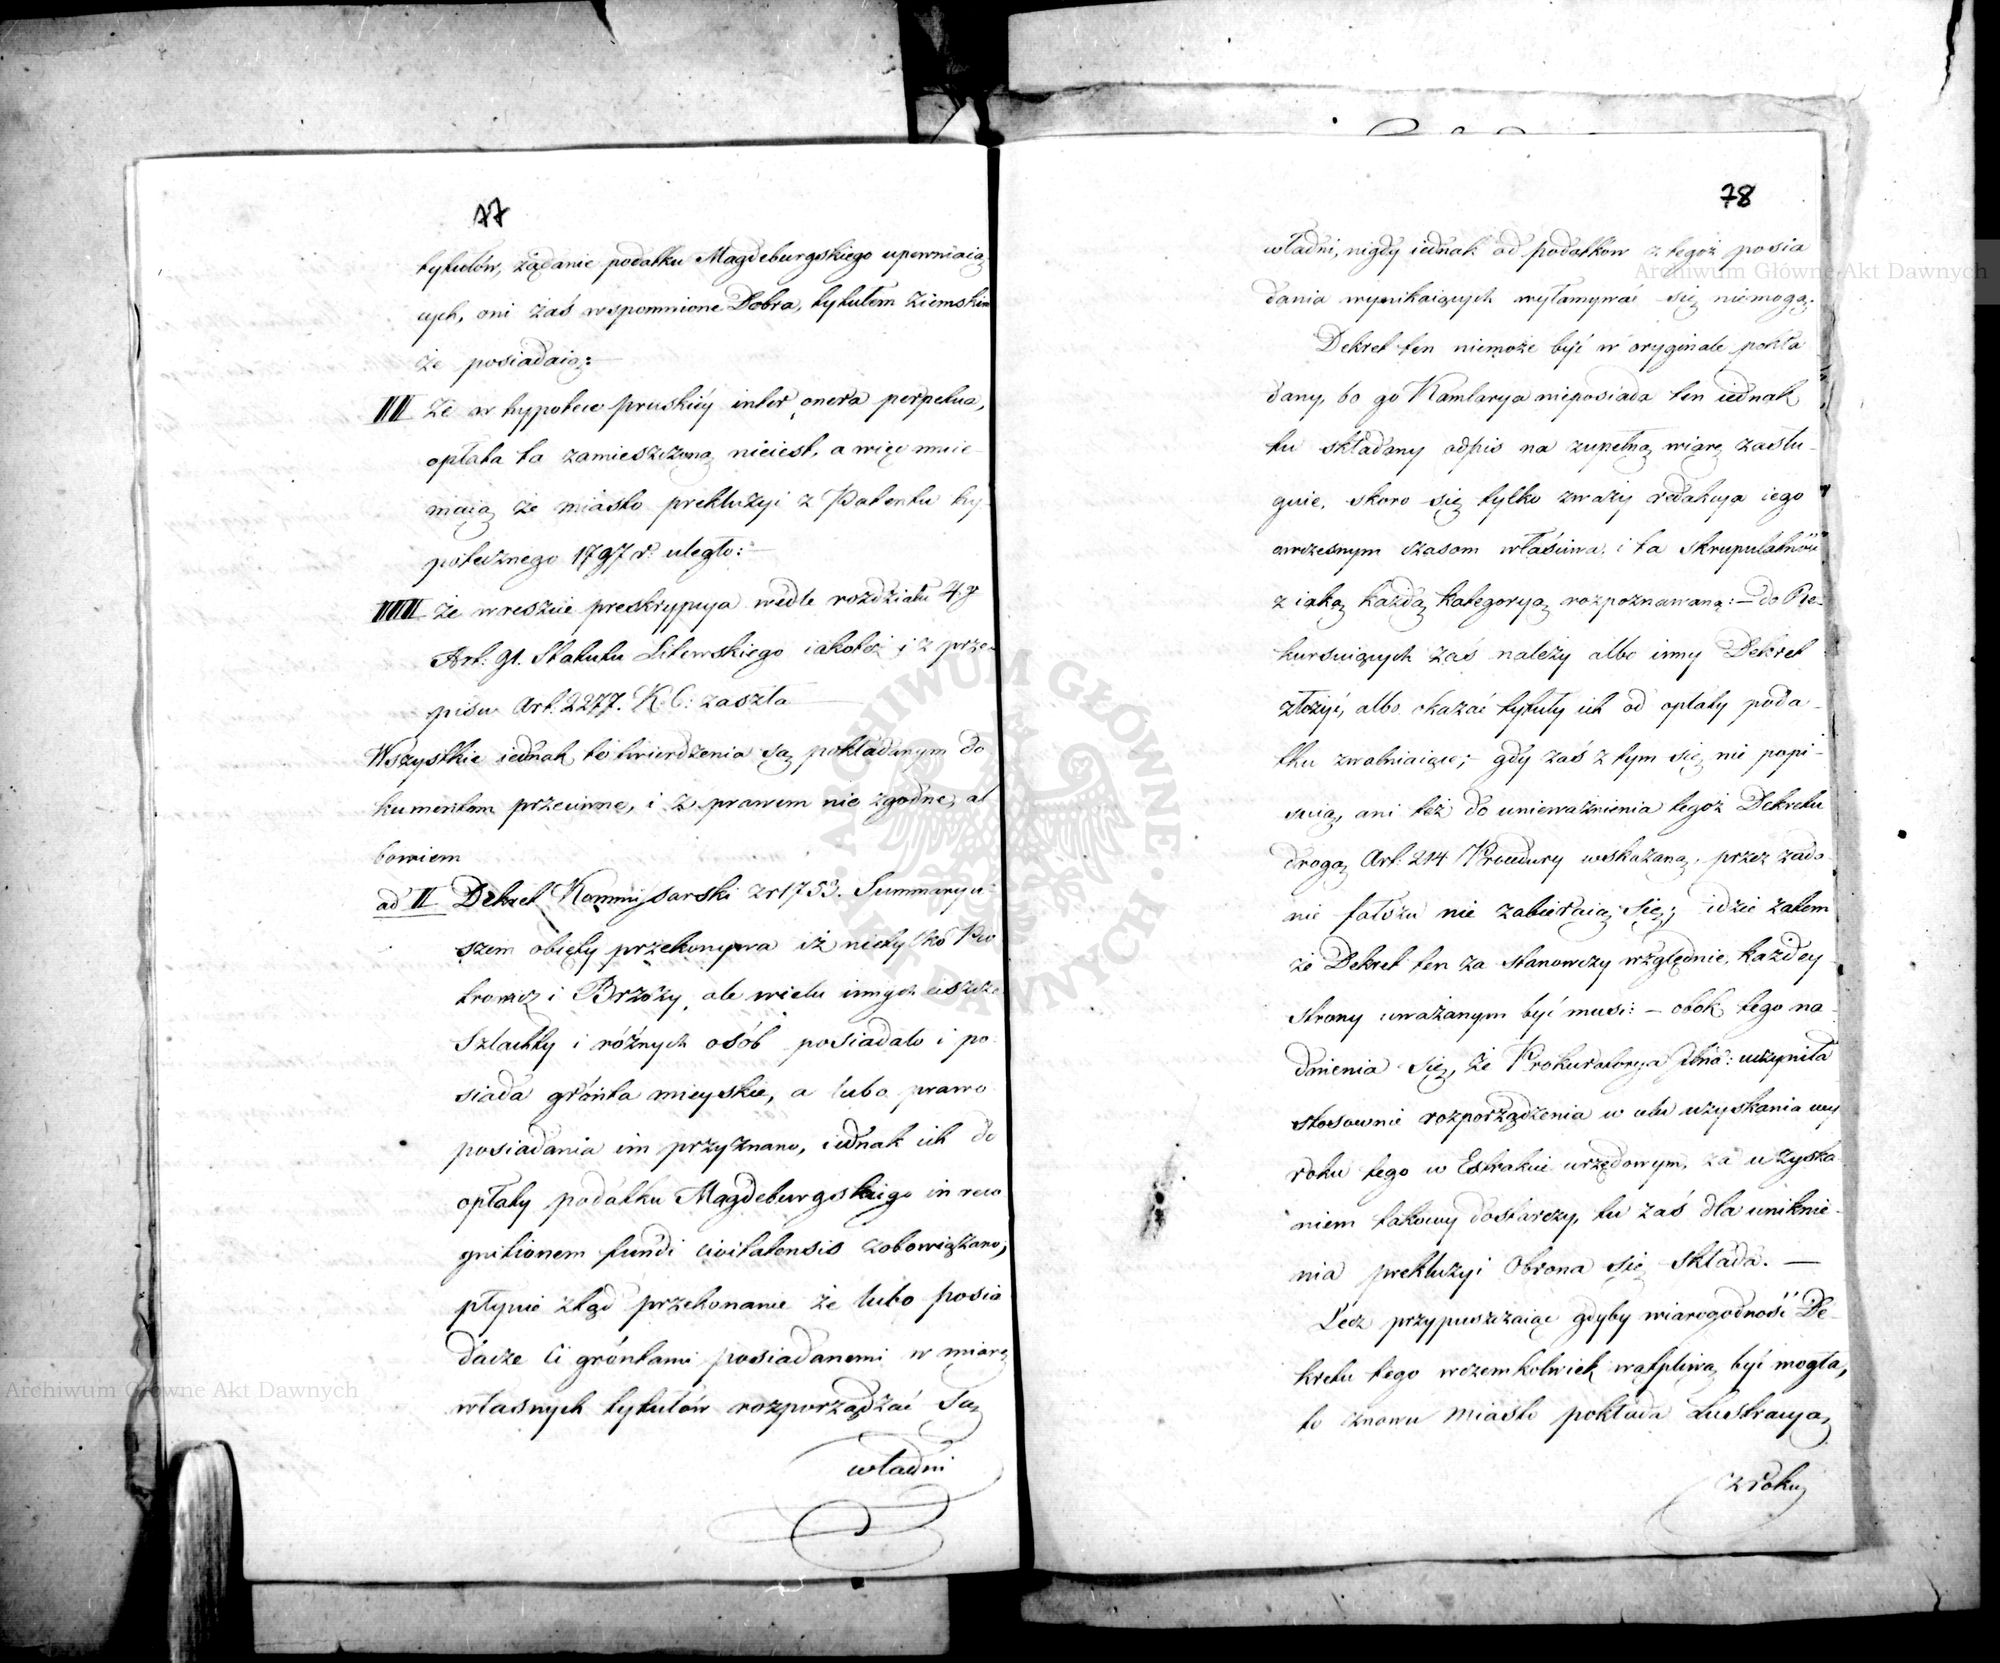 77
tytułów, żądanie podatku Magdeburgskiego upewniaią
cych, oni zaś wspomnione Dobra, tytułem Ziemskim
że posiadaią:
IIII że w hypotece pruskiéy inter onera perpetua,
opłata ta zamieszczoną nieiest, a więc mnie
maią że miasto prekluzyi z Patentu hy
potecznego 1797 r: uległo:
IIIII że wreszcie preskrypcya wedle rozdziału 4. g
Art: 91. Statutu Litewskiego iakoteż i z prze
pisu Art. 2277. K. C: zaszła
Wszystkie iednak te twierdzenia są pokładanym do
kumentom przeciwne, i z prawem nie zgodne, al
bowiem
ad II Dekret Kommissarski z r 1753. Summaryu
szem obięty przekonywa iż nietylko
i Brzozy, ale wielu innych ieszcze
Szlachty i różnych osób posiadało i po
siada grónta mieyskie, a lubo prawo
posiadania im przyznano, iednak ich do
opłaty podatku Magdeburgskiego in reco
gnitionem fundi civitatensis zobowiązano;
płynie ztąd przekonanie że lubo posia
dacze ci gróntami posiadanemi w miarę
własnych tytułów rozporządzać są
władni
78
władni, nigdy iednak od podatków z tegoż posia
dania wynikaiących wyłamywać się niemogą.
Dekret ten niemoże być w oryginale pokła
dany, bo go Kamlarya nieposiada ten iednak
tu składany odpis na zupełną wiarę zasłu
guie, skoro się tylko zważy redakcya iego
owczesnym czasom właściwa, i ta skrupulatność
z iaką każdą kategoryą rozpoznawaną: – do Re
kursuiących zaś należy albo inny Dekret
złożyć, albo okazać tytuły ich od opłaty poda
tku zwalniaiące; – gdy zaś z tym się nie popi
suią, ani też do unieważnienia tegoż Dekretu
drogą Art: 214 Procedury wskazaną, przez zada
nie fałszu nie zabieraią się; idzie zatem
że Dekret ten za stanowczy względnie, każdey
strony uważanym być musi: – obok tego na
dmienia się, że Prokuratorya uczyniła
stosownie rozporządzenia w celu uzyskania wy
roku tego w Extrakcie urzędowym, za uzyska
niem takowy dostarczy, tu zaś dla uniknie
nia prekluzyi Obrona się składa. –
Lecz przypuszczaiąc gdyby wiarogodność De
kretu tego wczemkolwiek wątpliwą być mogła,
to znowu Miasto pokłada Lustracyą
z roku
Archiwum Główne Akt Dawnych
Archiwum Główne Akt Dawnych
ARCHIWUM GŁÓWNE AKT DAWNYCH